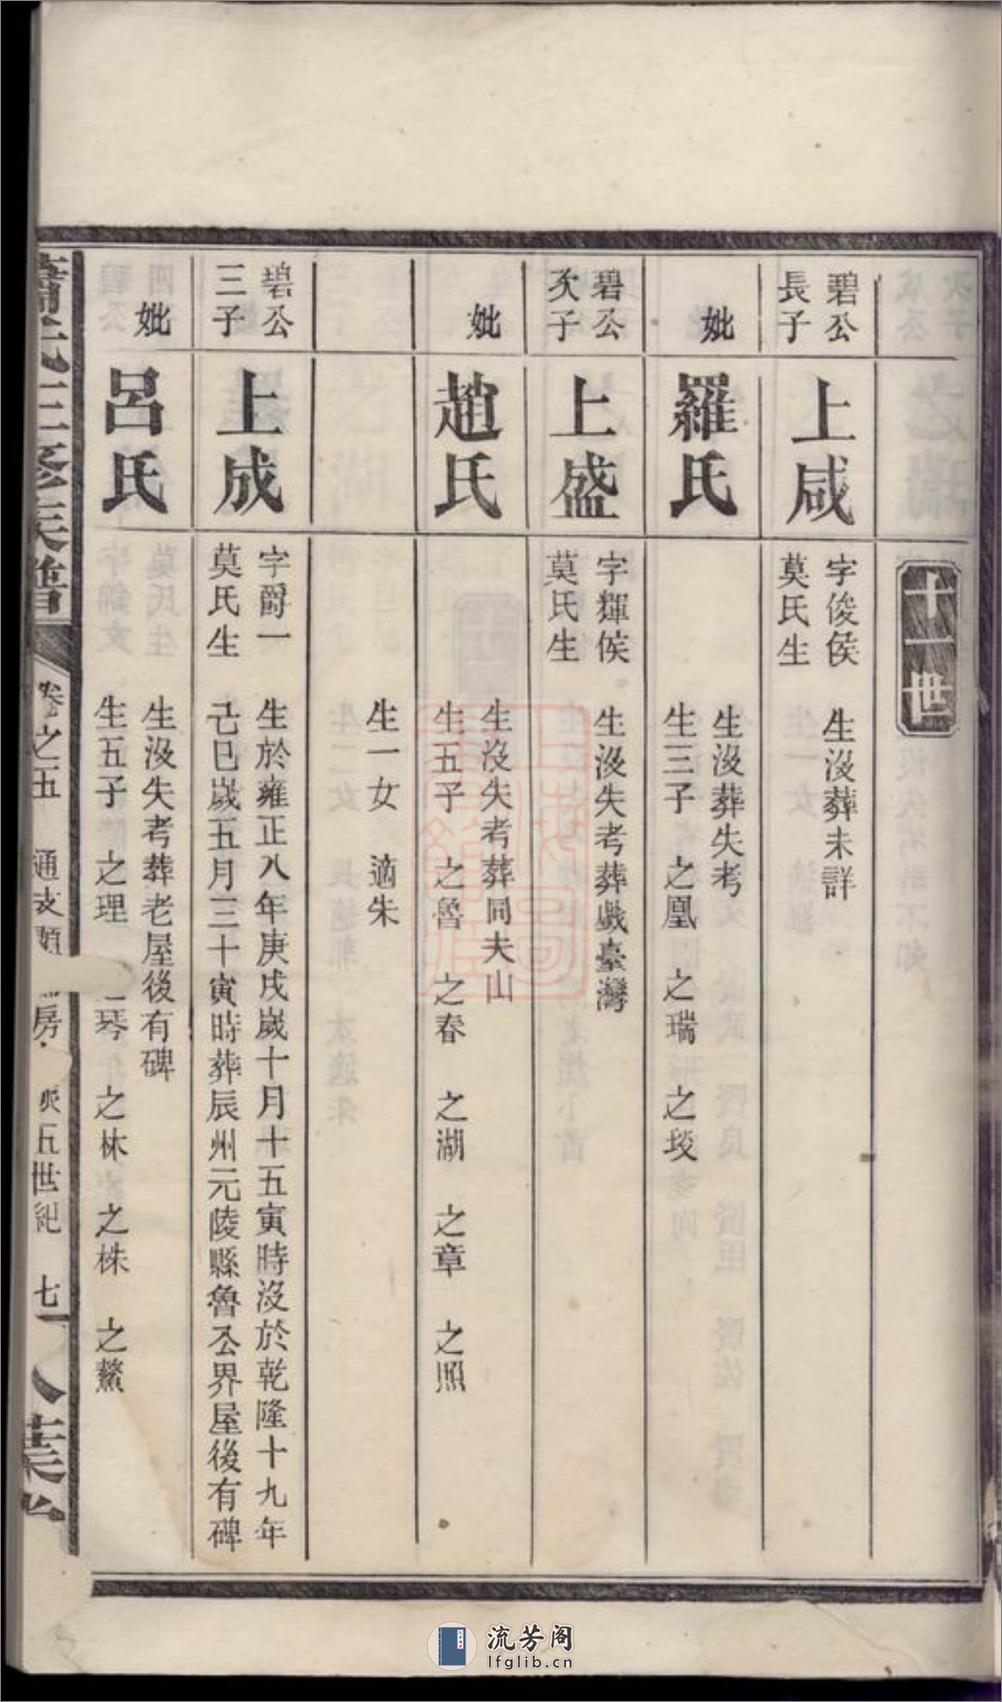 十一世
碧公
長子
上咸
字俊侯
莫氏生
生沒葬未詳
妣
羅氏
生沒葬失考
生三子 之凰 之瑞 之琰
碧公
次子
上盛
字輝侯
莫氏生
生沒失考葬戲臺灣
妣
趙氏
生沒失考葬同夫山
生五子 之魯 之春 之湖 之章 之照
生一女 適朱
碧公
三子
上成
字爵一
莫氏生
生於雍正八年庚戌歲十月十五寅時沒於乾隆十九年
己巳歲五月三十寅時葬辰州元陵縣魯公界屋後有碑
妣
呂氏
生沒失考葬老屋後有碑
生五子 之理 之琴 之林 之株 之鰲
蕭氏三修族譜
卷之五 通 房 五世紀 七
八葉堂
流芳阁
lfglib.cn